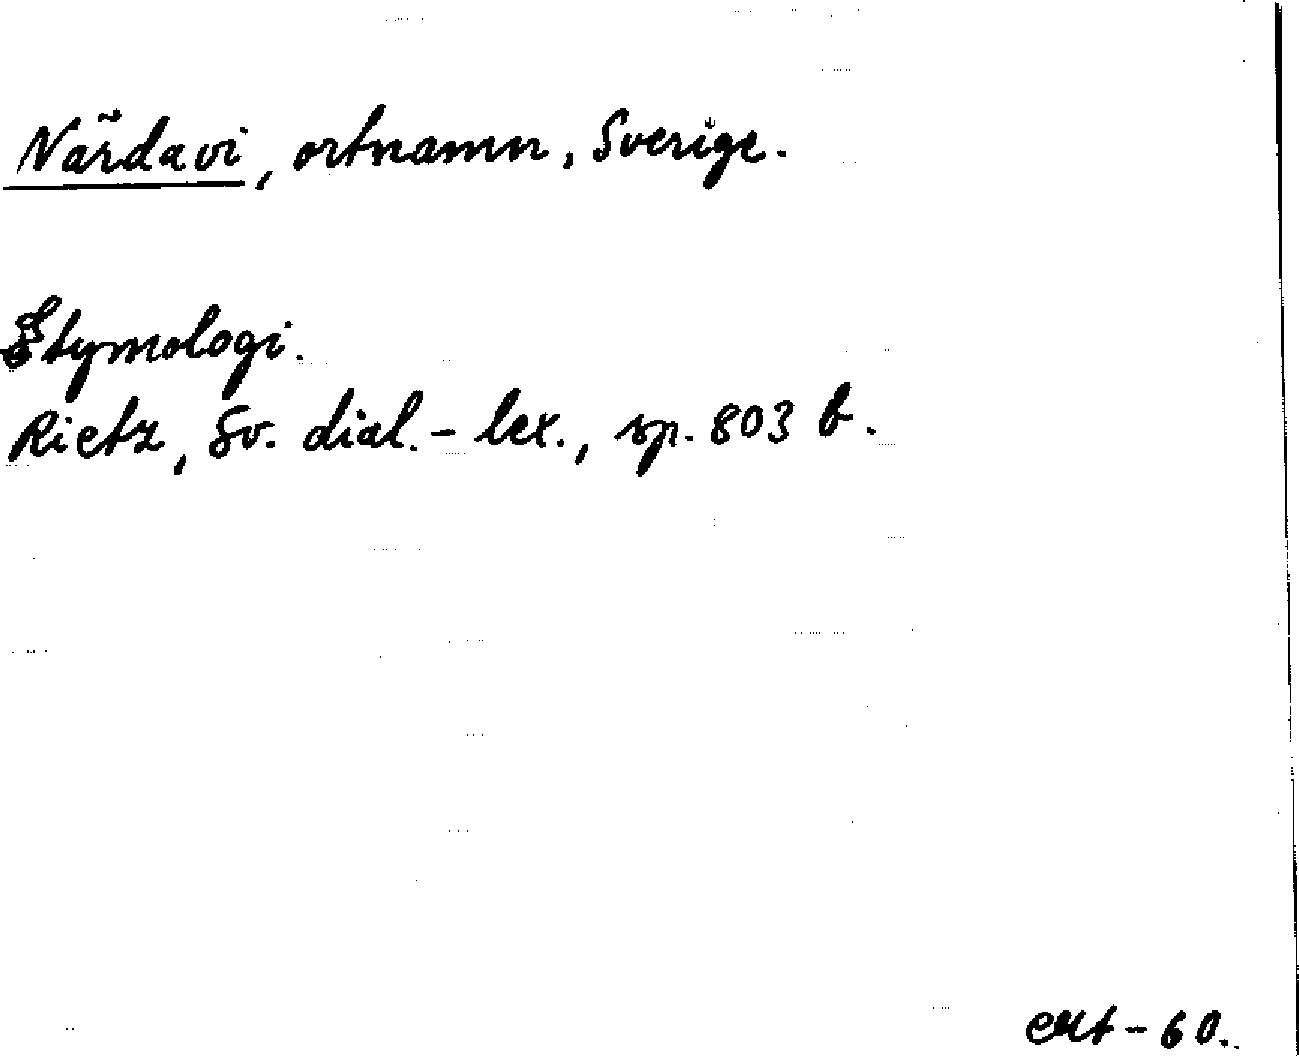 Närdavi, ortnamn, Sverige.
Etymologi.
Rietz, Sv. dial.-lex., sp. 803 b.
-60.